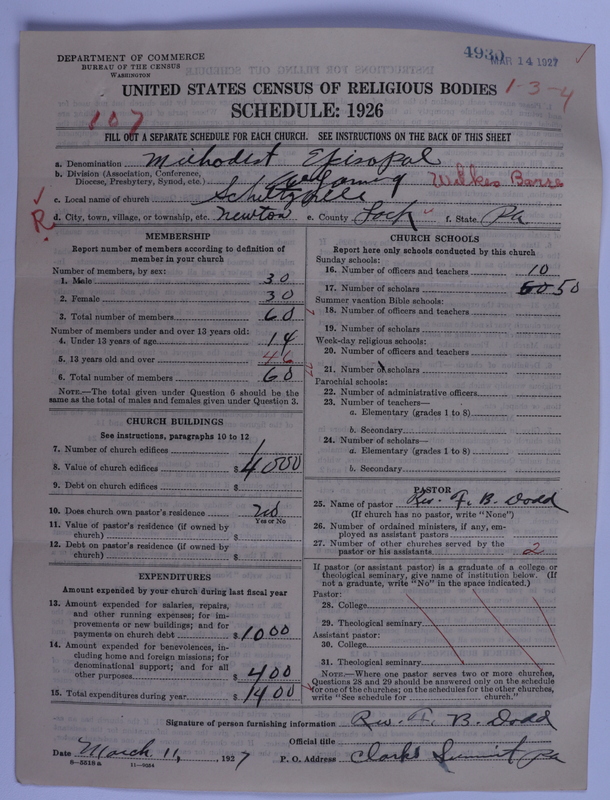 DEPARTMENT OF COMMERCE
BUREAU OF THE CENSUS
WASHINGTON
4930
MAR 14 1927
1-3-4
UNITED STATES CENSUS OF RELIGIOUS BODIES
SCHEDULE: 1926
107
FILL OUT A SEPARATE SCHEDULE FOR EACH CHURCH. SEE INSTRUCTIONS ON THE BACK OF THIS SHEET
a. Denomination Methodist Episcopal
b. Division (Association, Conference, Diocese, Presbytery, Synod, etc.) Wyoming Wilkes Barre
c. Local name of church Schultzville
R.
d. City, town, village, or township, etc. Newton e. County Lack f. State Pa
MEMBERSHIP
Report number of members according to definition of
member in your church
Number of members, by sex:
1. Male 30
2. Female 30
3. Total number of members 60
Number of members under and over 13 years old:
4. Under 13 years of age 14
5. 13 years old and over 46
6. Total number of members 60
NOTE.—The total given under Question 6 should be
same as the total of males and females given under Question 3.
CHURCH BUILDINGS
See instructions, paragraphs 10 to 12
7. Number of church edifices 1
8. Value of church edifices $4000
9. Debt on church edifices $
10. Does church own pastor's residence No
Yes or No
11. Value of pastor's residence (if owned by
church) $
12. Debt on pastor's residence (if owned by
church) $
EXPENDITURES
Amount expended by your church during last fiscal year
13. Amount expended for salaries, repairs,
and other running expenses; for im-
provements or new buildings; and for
payments on church debt $1000
14. Amount expended for benevolences, in-
cluding home and foreign missions; for
denominational support; and for all
other purposes $400
15. Total expenditures during year $1400
CHURCH SCHOOLS
Report here only schools conducted by this church
Sunday schools:
16. Number of officers and teachers 10
17. Number of scholars 50
Summer vacation Bible schools:
18. Number of officers and teachers
19. Number of scholars
Week-day religious schools:
20. Number of officers and teachers
21. Number of scholars
Parochial schools:
22. Number of administrative officers
23. Number of teachers—
a. Elementary (grades 1 to 8)
b. Secondary
24. Number of scholars—
a. Elementary (grades 1 to 8)
b. Secondary
PASTOR
25. Name of pastor Rev. F. B. Dodd
(If church has no pastor, write "None")
26. Number of ordained ministers, if any, em-
ployed as assistant pastors
27. Number of other churches served by the
pastor or his assistants 2
If pastor (or assistant pastor) is a graduate of a college or
theological seminary, give name of institution below. (If
not a graduate, write "No" in the space indicated.)
Pastor:
28. College
29. Theological seminary
Assistant pastor:
30. College
31. Theological seminary
NOTE.—Where one pastor serves two or more churches,
Questions 28 and 29 should be answered only on the schedule
for one of the churches; on the schedules for the other churches,
write "See schedule for church."
Signature of person furnishing information Rev. F. B. Dodd
Official title
Date March 11, 1927 P. O. Address Clarks Summit Pa
8—5518 a 11—9284